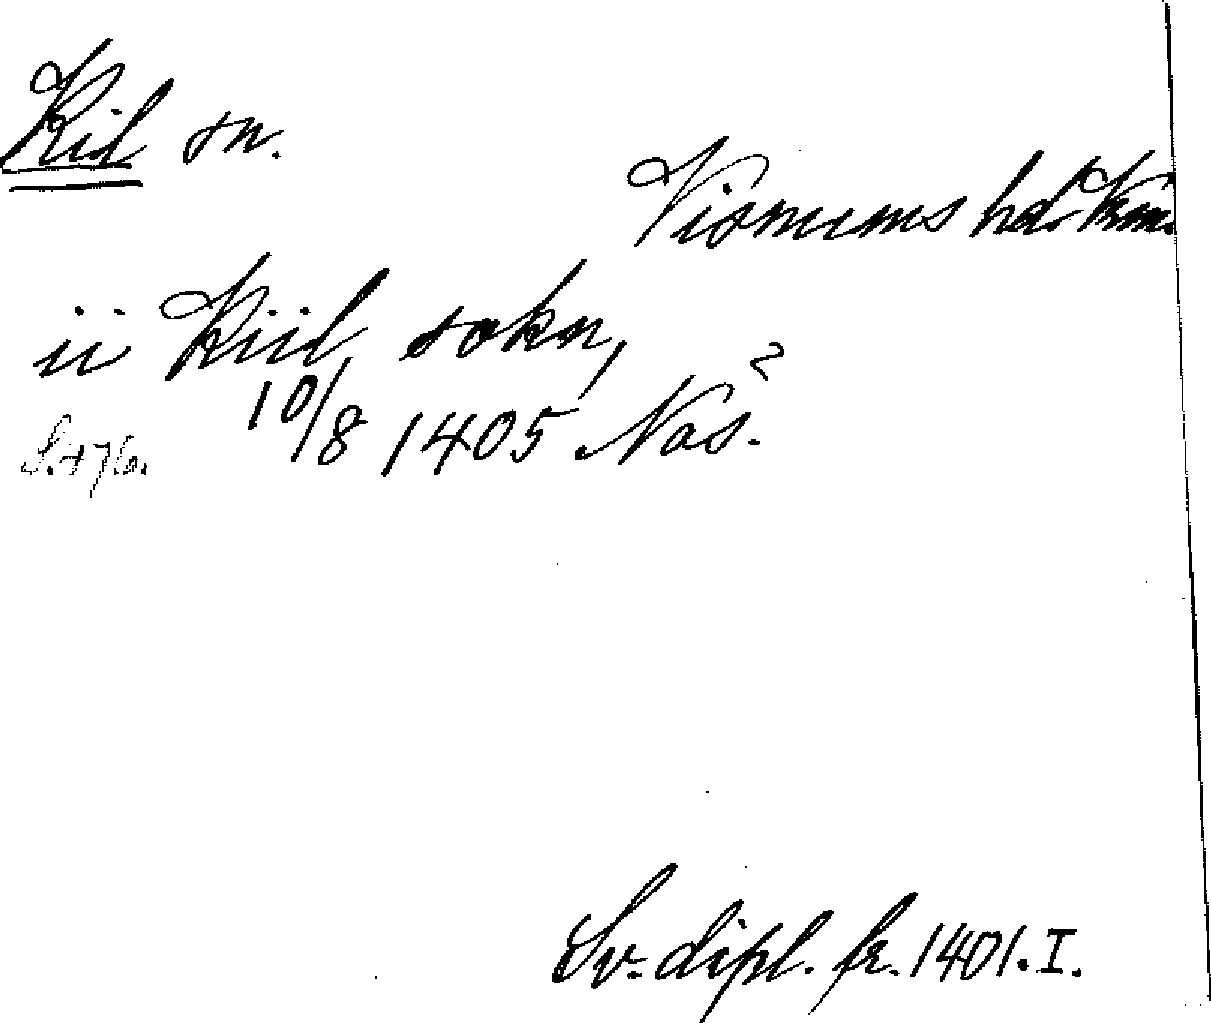 Kil sn.
Visnums hd. Vrm.
ii Kiil sokn,
10/8 1405 Nas?
S. 476.
Sv. dipl. fr. 1401. I.